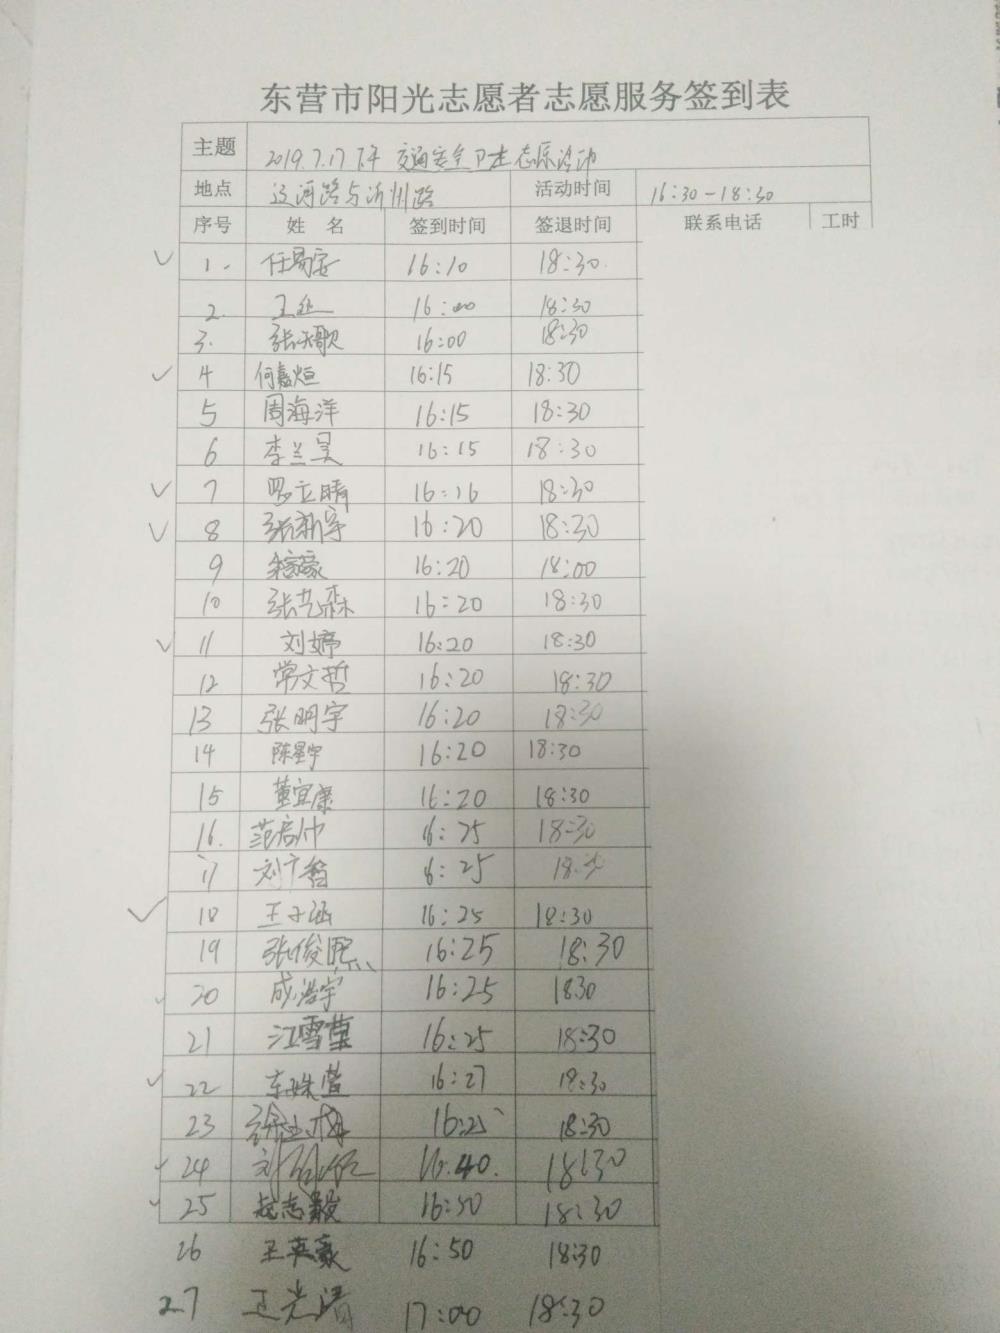 东营市阳光志愿者志愿服务签到表
主题 2019.7.17下午 交通安全卫生志愿活动
地点 辽河路与沂州路 活动时间 16:30-18:30
序号 姓 名 签到时间 签退时间 联系电话 工时
1. 任易安 16:10 18:30
2. 王延 16:00 18:30
3. 张天歌 16:00 18:30
4 何嘉烜 16:15 18:30
5 周海洋 16:15 18:30
6 李兰昊 16:15 18:30
7 罗立晴 16:16 18:30
8 张新宇 16:20 18:30
9 16:20 18:00
10 张艺森 16:20 18:30
11 刘婷 16:20 18:30
12 常文哲 16:20 18:30
13 张明宇 16:20 18:30
14 陈星宇 16:20 18:30
15 董宜康 16:20 18:30
16. 范启帅 16:25 18:30
17 刘广智 16:25 18:30
18 王子涵 16:25 18:30
19 张俊熙 16:25 18:30
20 成浩宇 16:25 1830
21 江雪莹 16:25 18:30
22 东姝萱 16:27 18:30
23 16:25 18:30
24 刘 16:40. 18:30
25 赵志毅 16:50 18:30
26 王英豪 16:50 18:30
27 王光清 17:00 18:30